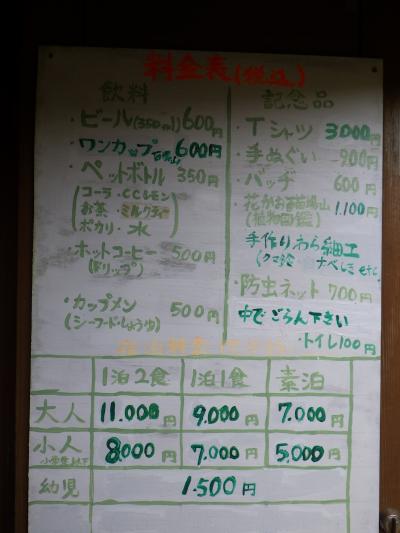 料金表(税込)
飲料
・ビール(350ml)600円
・ワンカップ 600円
・ペットボトル 350円
(コーラ・CCレモン
お茶・ミルクティ
ポカリ・水)
・ホットコーヒー 500円
(ドリップ)
・カップメン 500円
(シーフード・しょうゆ)
記念品
・Tシャツ 3000円
・手ぬぐい 900円
・バッヂ 600円
・花かお苗場山 1.100円
(植物図鑑)
手作りわら細工
・防虫ネット 700円
中でごらん下さい
・トイレ100円
1泊2食 1泊1食 素泊
大人 11.000円 9.000円 7.000円
小人 小学生以下 8.000円 7.000円 5.000円
幼児 1.500円